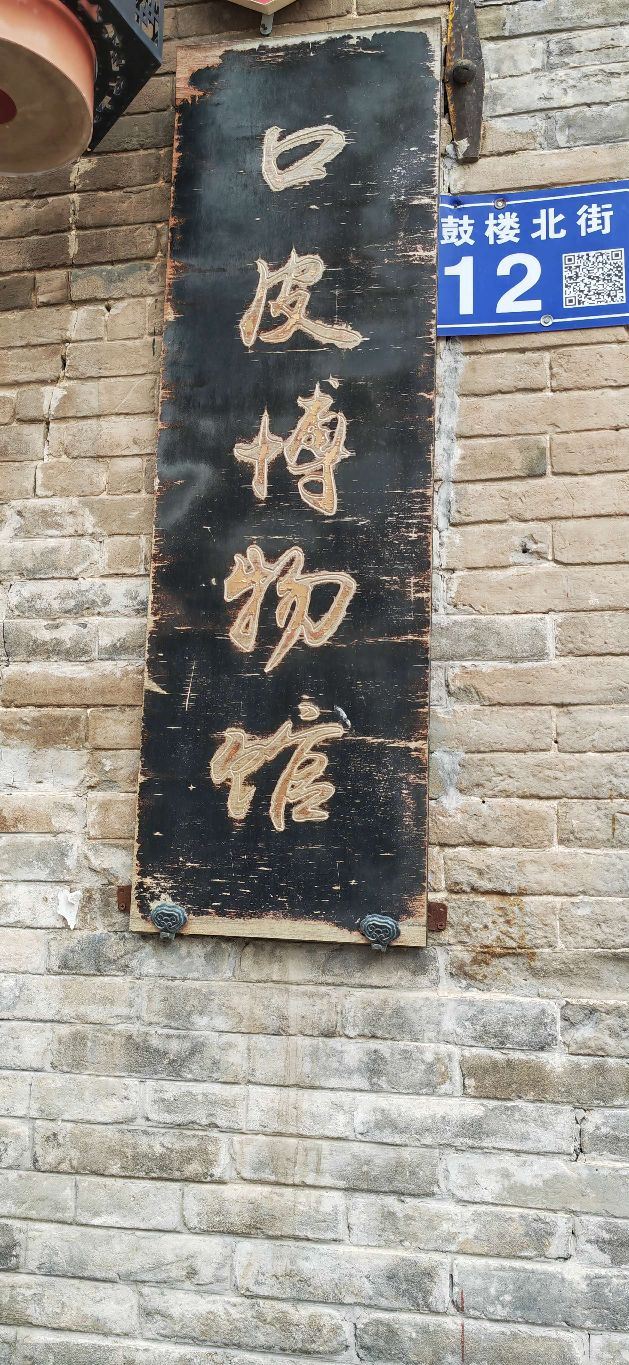 口皮博物馆
鼓楼北街
12